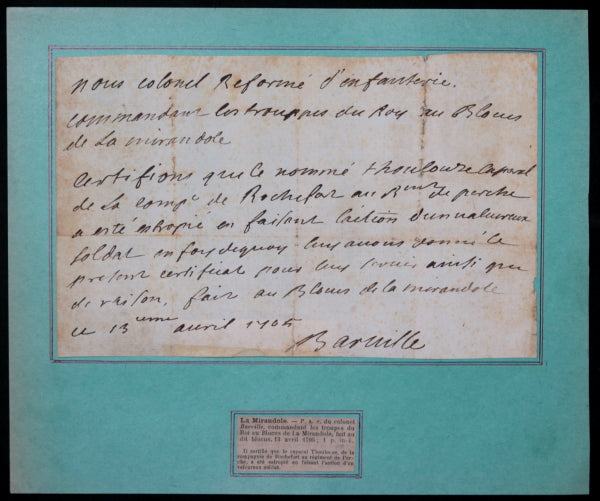 nous colonel Reformé d'enfanterie.
commandant les trouppes du Roy au Blocus
de La mirandole
Certifions que le nommé thoulouze Caporal
de La compe de Rochefort au Rment de perche
a esté estropié en faisant l'action d'un valeureux
soldat en foy de quoy luy avons donné le
present certificat pour luy servir ainsi que
de raison, fait au Blocus de la mirandole
ce 13eme avril 1705
Barville
La Mirandole. — P. a. s. du colonel
Barville, commandant les troupes du
Roi au Blocus de La Mirandole, fait au
dit blocus, 13 avril 1705; 1 p. in-4.
Il certifie que le caporal Thoulouze, de la
compagnie de Rochefort au régiment de Per-
che, a été estropié en faisant l'action d'un
valeureux soldat.